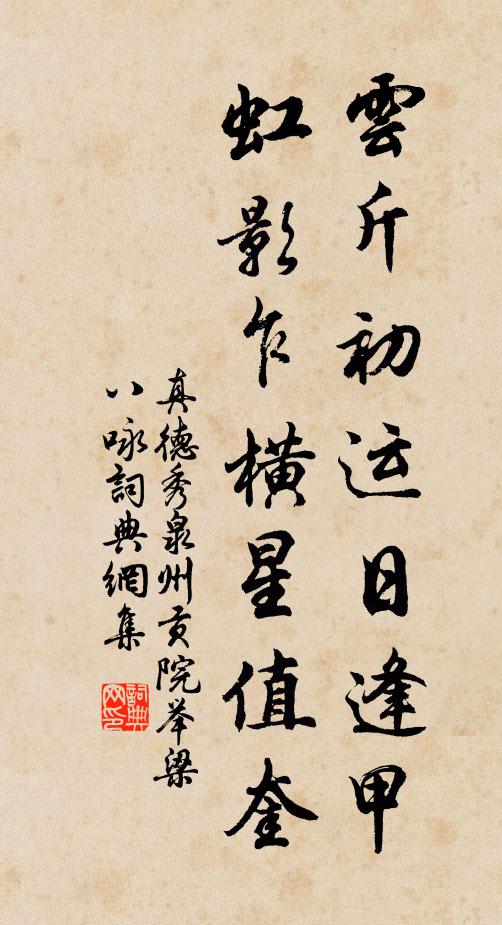 雲斤初运日逢甲
虹影乍橫星值奎
真德秀泉州贡院举梁
八咏詞典網集
詞典网印